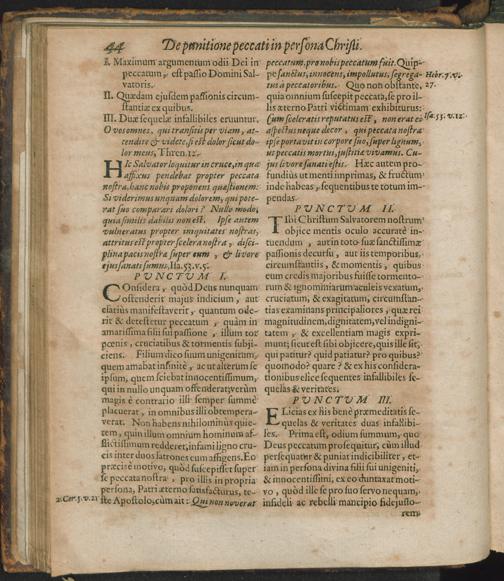 44 De punitione peccati in persona Christi.
I. Maximum argumentum odii Dei in
peccatum, est passio Domini Sal-
vatoris.
II. Quædam ejusdem passionis circum-
stantiæ ex quibus.
III. Duæ sequelæ infallibiles eruuntur.
O vos omnes, qui transitis per viam, at-
tendite & videte, si est dolor sicut do-
lor meus, Thren. 12.
HIc Salvator loquitur in cruce, in qua
affixus pendebat propter peccata
nostra, hanc nobis proponens quæstionem:
Si viderimus unquam dolorem, qui pote-
rat suo comparari dolori? Nullo modo,
quia similis dabilis non est. Ipse autem
vulneratus propter iniquitates nostras,
attritus est propter scelera nostra, disci-
plina pacis nostræ super eum, & livore
ejus sanati sumus, Isa. 53. v. 5.
PUNCTUM I.
COnsidera, quòd Deus nunquam
ostenderit majus indicium, aut
clariùs manifestaverit, quantum ode-
rit & detestetur peccatum, quàm in
amarissima filii sui passione, illum tot
pœnis, cruciatibus & tormentis subji-
ciens. Filium dico suum unigenitum,
quem amabat infinitè, ac ut alterum se
ipsum, quem sciebat innocentissimum,
qui in nullo unquam offenderat, verùm
magis è contrario illi semper summè
placuerat, in omnibus illi obtempera-
verat. Non habens nihilominus quie-
tem, quin illum omnium hominum af-
flictissimum redderet, infami ligno cru-
cis inter duos latrones eum affigens. Eo
præcisè motivo, quòd suscepisset super
se peccata nostra, pro illis in propria
persona, Patri æterno satisfacturus, te-
2. Cor. 5. v. 21 ste Apostolo, cùm ait: Qui non noverat
peccatum, pro nobis peccatum fuit. Quip-
pe sanctus, innocens, impollutus, segrega- Hebr. 7. v.
tus a peccatoribus. Quo non obstante, 27.
quia omnium suscepit peccata, se pro il-
lis æterno Patri victimam exhibiturus:
Cum sceleratis reputatus est, non erat ei Isa. 53. v. 12.
aspectus neque decor, qui peccata nostra
ipse portavit in corpore suo, super lignum,
ut peccatis mortui, justitiæ vivamus. Cu-
jus livore sanati estis. Hæc autem pro-
fundiùs ut menti imprimas, & fructum
inde habeas, sequentibus te totum im-
pendas.
PUNCTUM II.
TIbi Christum Salvatorem nostrum
objice mentis oculo accuratè in-
tuendum, aut in toto suæ sanctissimæ
passionis decursu, aut iis temporibus,
circumstantiis, & momentis, quibus
eum credis majoribus fuisse tormento-
rum & ignominiarum aculeis vexatum,
cruciatum, & exagitatum, circumstan-
tias examinans principaliores, quæ rei
magnitudinem, dignitatem, vel indigni-
tatem, & excellentiam magis expri-
munt; sicut est sibi objicere, quis ille sit,
qui patitur? quid patiatur? pro quibus?
quomodo? quare? & ex his conside-
rationibus elice sequentes infallibiles se-
quelas & veritates.
PUNCTUM III.
ELicias ex his benè præmeditatis se-
quelas & veritates duas infallibi-
les. Prima est, odium summum, quo
Deus peccatum prosequitur, cùm illud
persequatur & puniat indicibiliter, et-
iam in persona divina filii sui unigeniti,
& innocentissimi, ex eo duntaxat moti-
vo, quòd ille se pro suo servo nequam,
infideli ac rebelli mancipio fidejusso-
rem